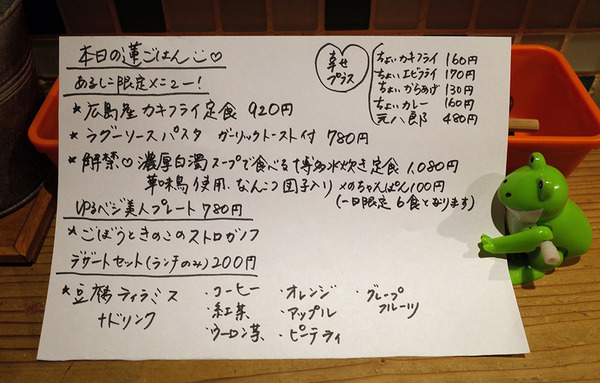 本日の蓮ごはん♡
あるしこ限定メニュー!
★広島産カキフライ定食 920円
★ラグーソースパスタ ガーリックトースト付 780円
★解禁♡濃厚白濁スープで食べる博多水炊き定食 1,080円
華味鳥使用、なんこつ団子入り 〆のちゃんぽん100円
(一日限定6食となります)
ゆるベジ美人プレート 780円
★ごぼうときのこのストロガノフ
デザートセット(ランチのみ)200円
★豆腐ティラミス
+ドリンク
・コーヒー ・オレンジ ・グレープフルーツ
・紅茶 ・アップル
・ウーロン茶 ・ピーチティ
幸せ
プラス
ちょいカキフライ 160円
ちょいエビフライ 170円
ちょいからあげ 130円
ちょいカレー 160円
元八郎 480円